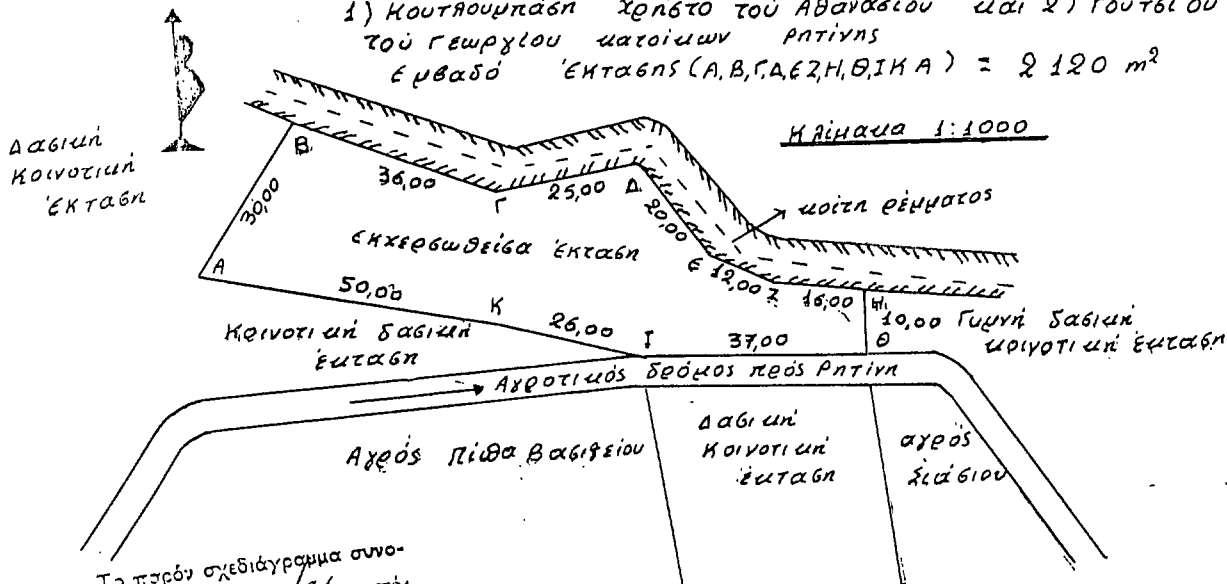 1) Κουτλουμπάση Χρήστο τού Αθανασίου και 2) Γούτσιου
τού Γεωργίου κατοίκων Ρητίνης
Εμβαδό Έκτασης (Α,Β,Γ,Δ,Ε,Ζ,Η,Θ,Ι,Κ,Α) = 2 120 m²
Κλίμακα 1:1000
Δασική
Κοινοτική
Έκταση
Β
36,00
25,00
Δ
Γ
30,00
20,00
κοίτη ρέμματος
εκχερσωθείσα Έκταση
Ε
12,00
Ζ
16,00
Η
Α
50,00
Κ
26,00
Ι
37,00
10,00
Θ
Γυμνή δασική
κοινοτική έκταση
Κοινοτική δασική
έκταση
Αγροτικός δρόμος πρός Ρητίνη
Αγρός Πίθα Βασιλείου
Δασική
Κοινοτική
έκταση
αγρός
Σιάσιου
Το παρόν σχεδιάγραμμα συνο-